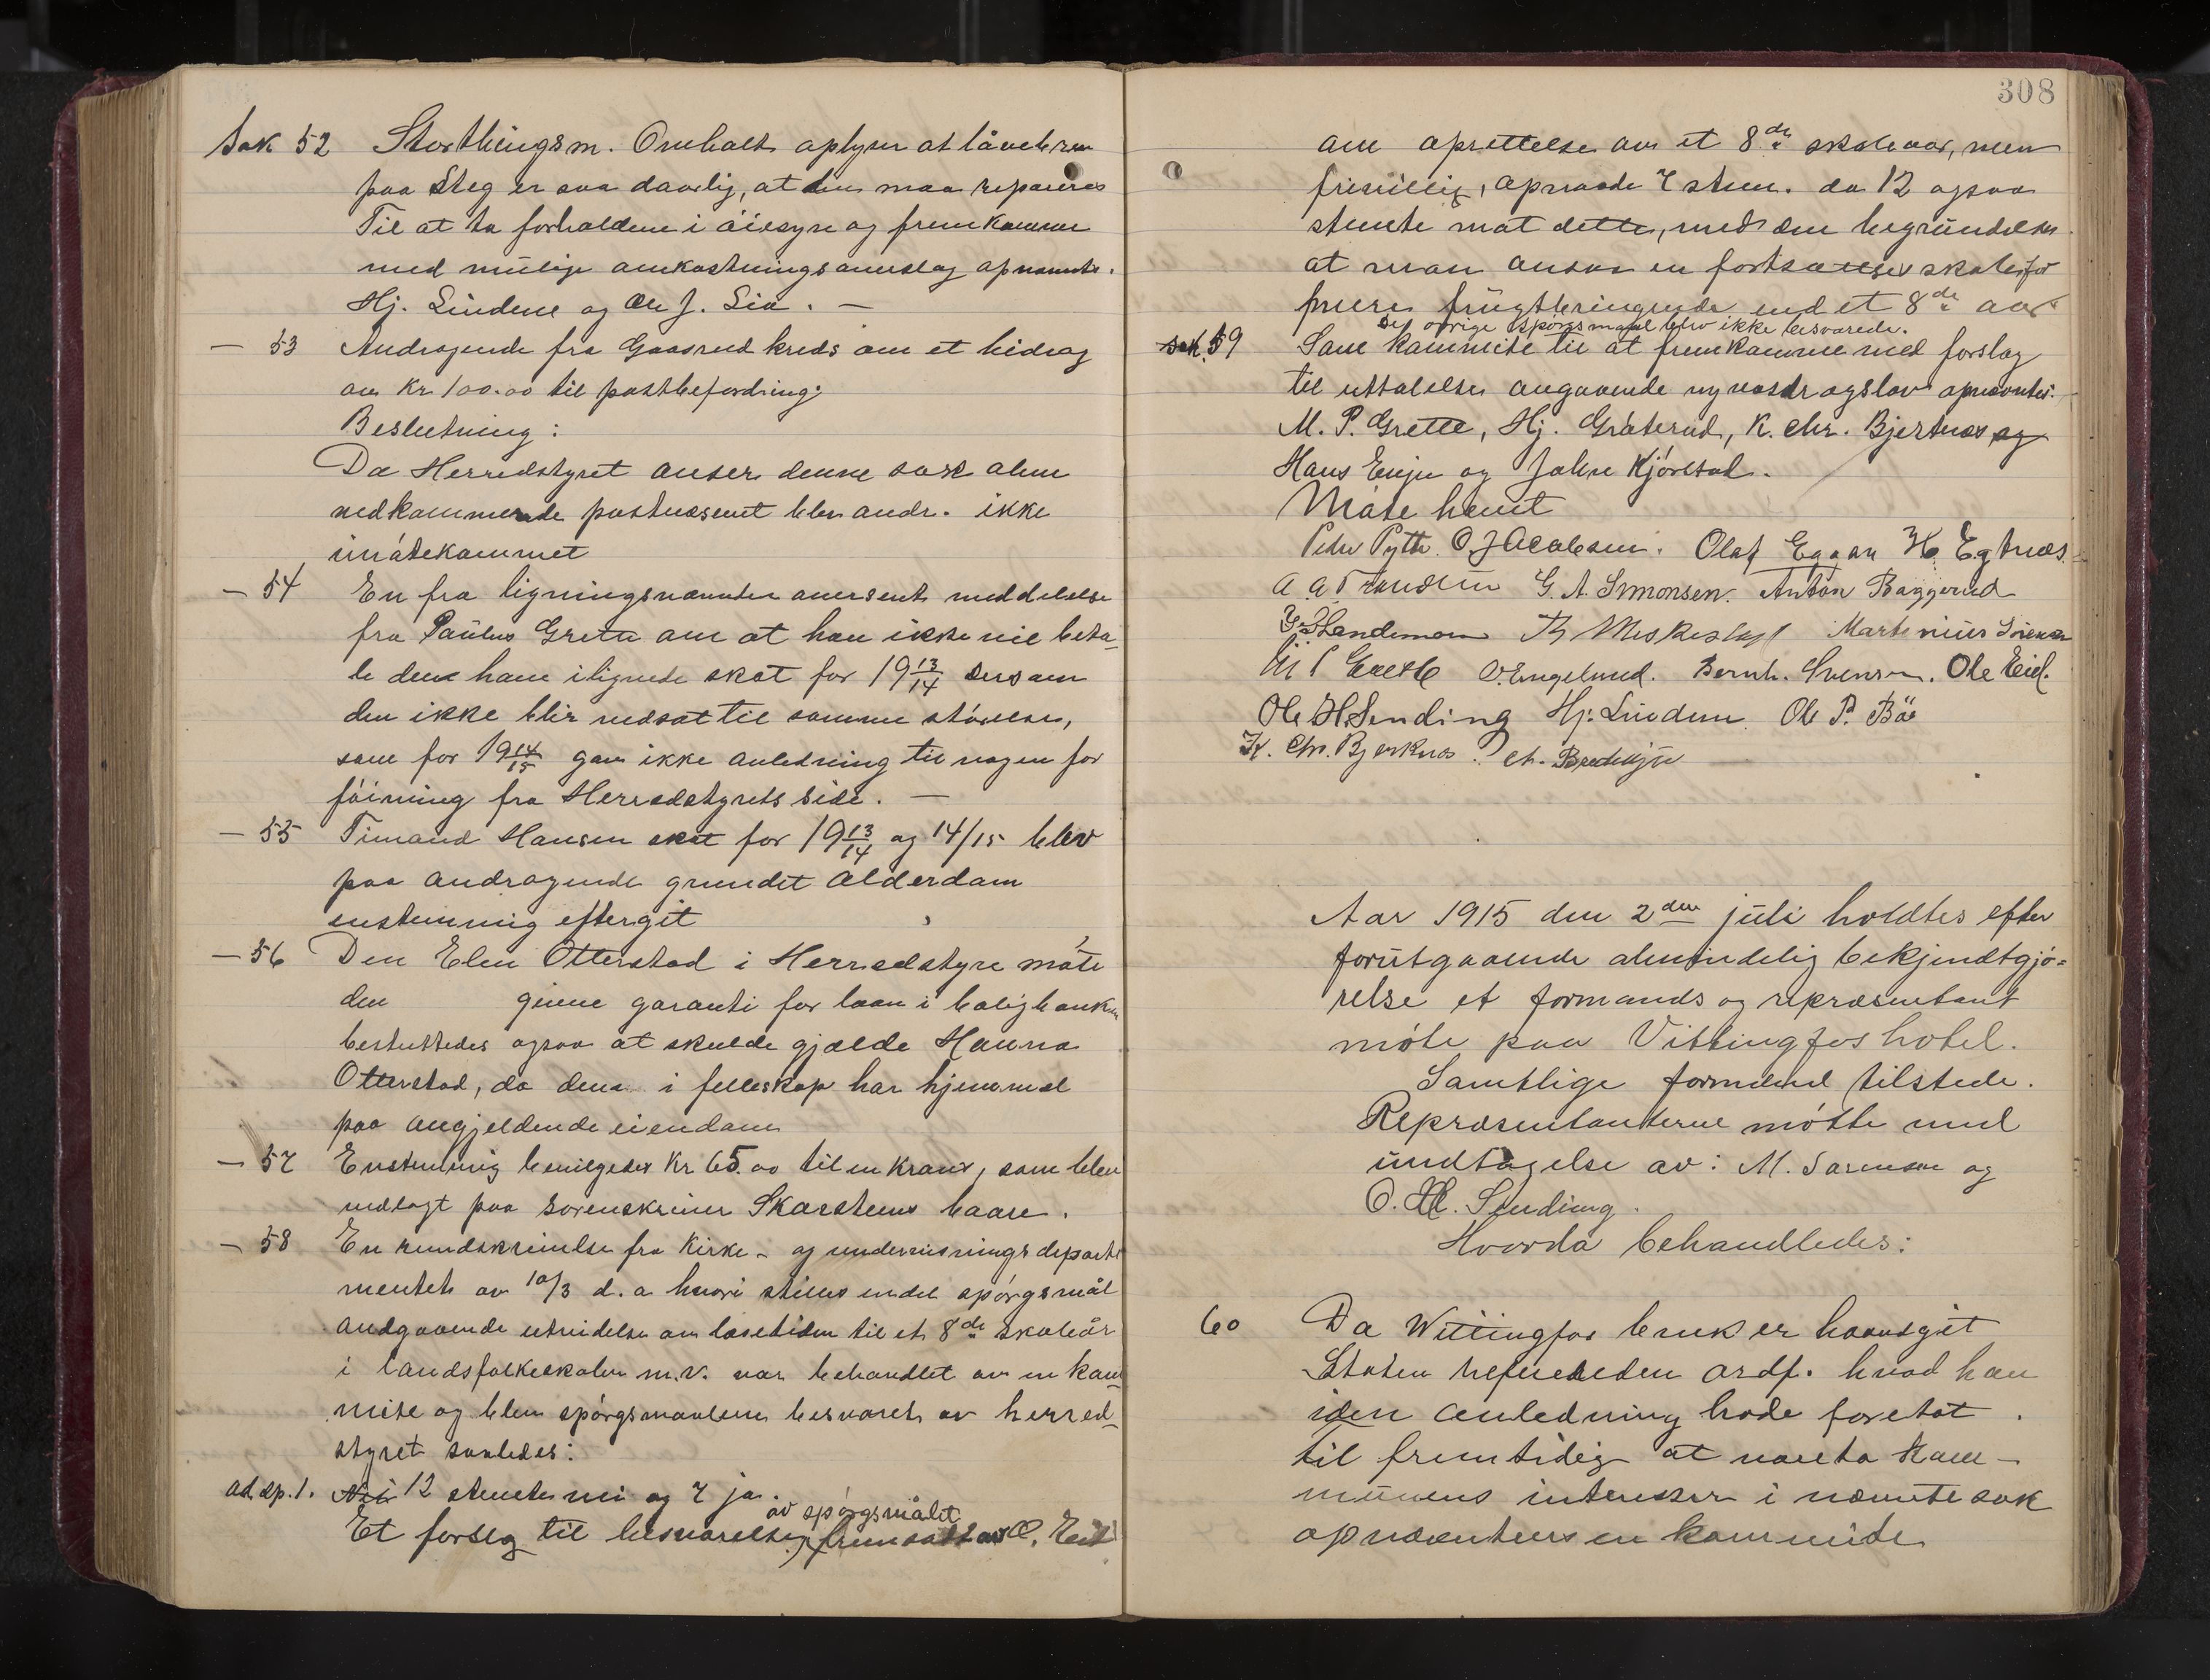 Sak 52 Storthingsm. Omholt oplyser at låvebroen
paa Steg er saa daarlig, at den maa repareres
Til at ta forholdene i öiesyn og fremkomme
med mulige omkostningsanslag opnævntes.
Hj. Lindem og Ole J. Lia. —
— 53 Andragende fra Gaasrud kreds om et bidrag
av Kr. 100.00 til postbefordring:
Beslutning:
Da Herredstyret anser denne sak alene
vedkommende postvæsenet blev andr. ikke
imötekommet
— 54 En fra ligningsnævnden oversendt meddelelse
fra Paulus Grette om at han ikke vil beta-
le den ham ilignede skat for 19 13/14 dersom
den ikke blir nedsat til samme störrelse,
som for 19 14/15 gav ikke anledning til nogen for
föining fra Herredstyrets side. —
— 55 Timand Hansen skat for 19 13/14 og 14/15 blev
paa andragende grundet alderdom
enstemmig eftergit
— 56 Den Elen Otterstad i Herredstyre möte
den givne garanti for laan i boligbanken
besluttedes ogsaa at skulde gjælde Hanna
Otterstad, da denne i fellesskap har hjemmel
paa angjeldende eiendom
— 57 Enstemmig bevilgedes Kr 65.00 til en krans, som blev
nedlagt paa sorenskriver Skarstens baare.
— 58 En rundskrivelse fra Kirke- og undervisningsdeparte
mentet av 10/3 d. a hvori stilles endel spörgsmål
andgaaende utvidelse av læsetiden til et 8de skoleår
i landsfolkeskolen m.v. var behandlet av en kom-
mite og blev spörgsmaalene besvaret av herred-
styret saaledes:
ad. sp. 1. Nei 12 stemte nei og 7 ja.
av spörgsmålet
Et forslag til besvarelse, fremsatt av O. Eid
308
om oprettelse av et 8de skoleaar, men
frivillig, opnaade 7 stem. da 12 ogsaa
stemte mot dette, med den begrundelse
at man ansaa en fortsættelsesskole for
mere frugtbringende end et 8de aar
De övrige spörgsmaal blev ikke besvarede.
Sak. 59 Som kommite til at fremkomme med forslag
til uttalelse angaaende ny vasdragslov opnævntes:
M. P. Grette, Hj. Gråterud, K. Chr. Bjerknæs og
Hans Enju og Johan Kjörstad.
Möte hævet
Peder Pytte. O Jacobsen. Olaf Eggan H. Egtnæs.
A A Trondsen G. A. Simonsen. Anton Baggerud
Martinius Sörensen
M P Grette O. Engelund. Bernh. Svensen. Ole Eid.
Ole H. Sending Hj. Lindem Ole P. Bö
K. Chr. Bjerknæs.
Aar 1915 den 2den juli holdtes efter
forutgaaende almindelig bekjendtgjö=
relse et formands og repræsentant
möte paa Vittingfos hotel.
Samtlige formænd tilstede.
Repræsentanterne mötte med
undtagelse av: M. Sörensen og
O. H. Sending.
Hvorda behandledes:
60 Da Wittingfos bruk er hævdgit
Staten refererede ordf. hvad han
iden anledning hade foretat.
til fremtidig at vareta kom-
munens interesser i nævnte sak
opnævntes en kommite